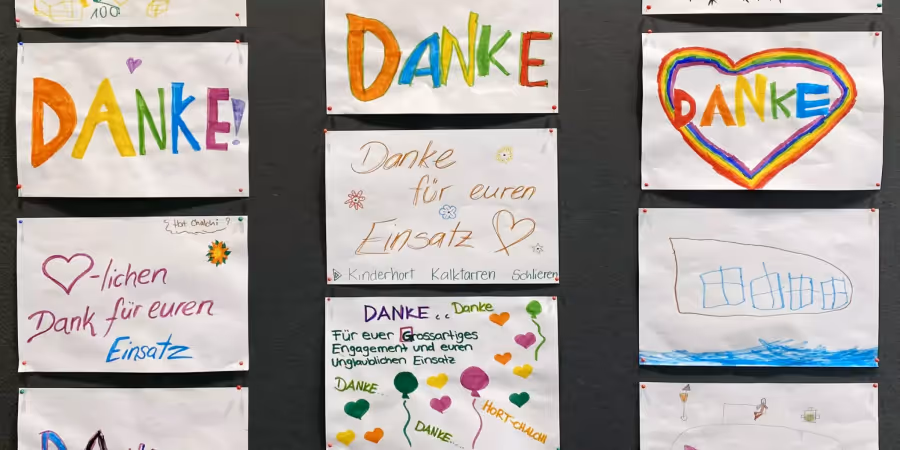 100
DANKE!
Hort Chalchi
♡-lichen
Dank für euren
Einsatz
DANKE
Danke
für euren
Einsatz
Kinderhort Kalktarren Schlieren
DANKE.. Danke
Für euer Grossartiges
Engagement und euren
Unglaublichen Einsatz
DANKE..
HORT-CHALCHI
DANKE....
DANKE